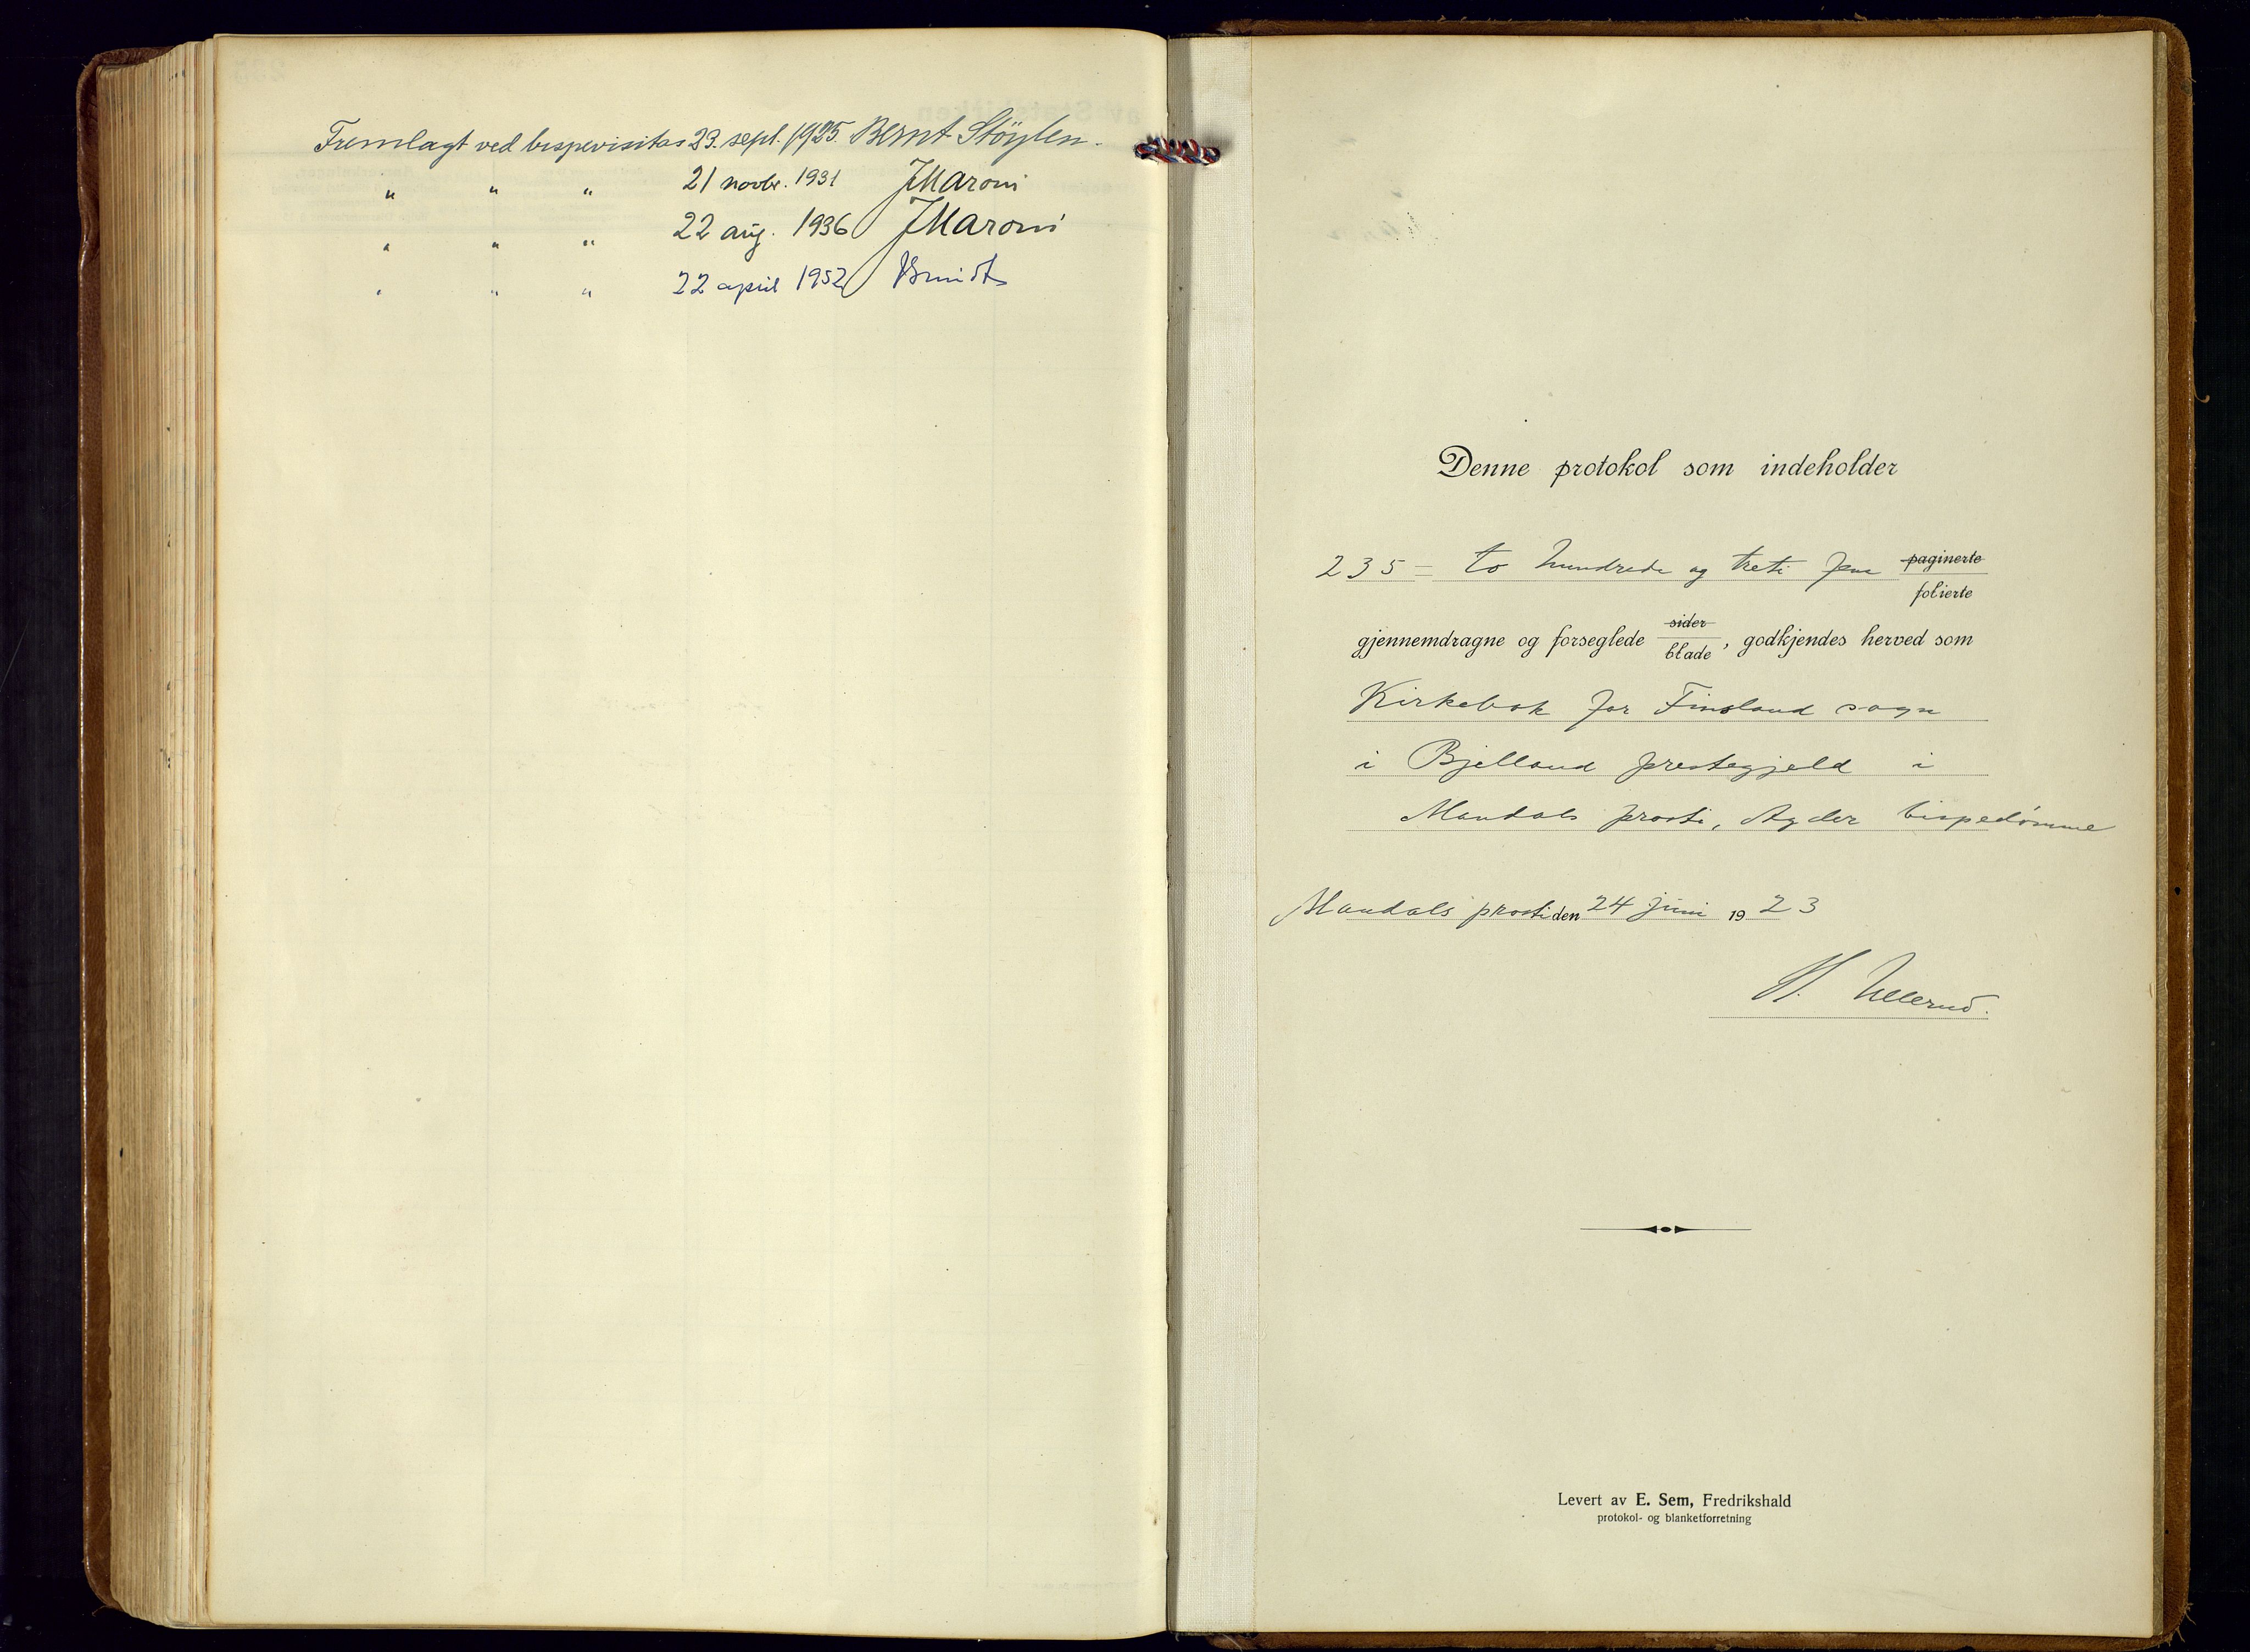 Fremlagt ved bispevisitas 23. sept. 1925. Bernt Støylen.
" " " 21 novbr. 1931 J Maroni
" " " 22 aug. 1936 J Maroni
" " " 22 april 1952
Denne protokol som indeholder
235 = to hundrede og treti fem paginerte
folierte
sider
gjennemdragne og forseglede blade, godkjendes herved som
Kirkebok for Finsland sogn
i Bjelland prestegjeld i
Mandals prosti, Agder bispedømme
Mandals prosti den 24 juni 1923
H. Ullerud.
Levert av E. Sem, Fredrikshald
protokol- og blanketforretning